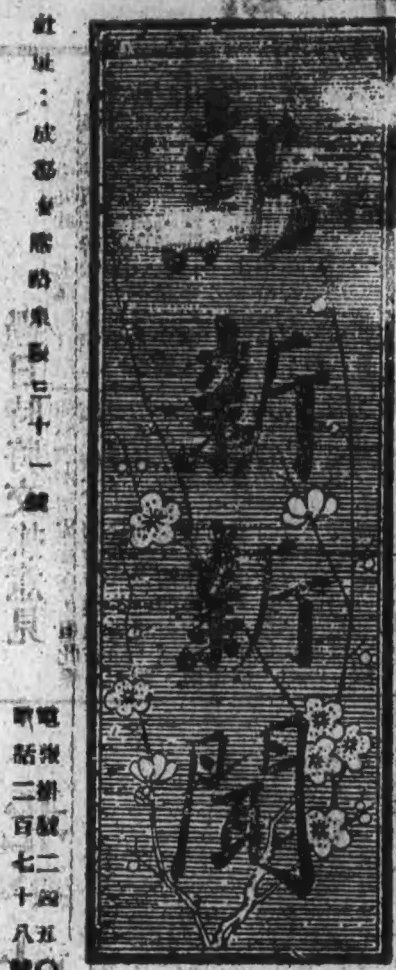 新新新聞
社址：成都春熙路東段三十一號
電報掛號二四五〇
電話二百七十八號